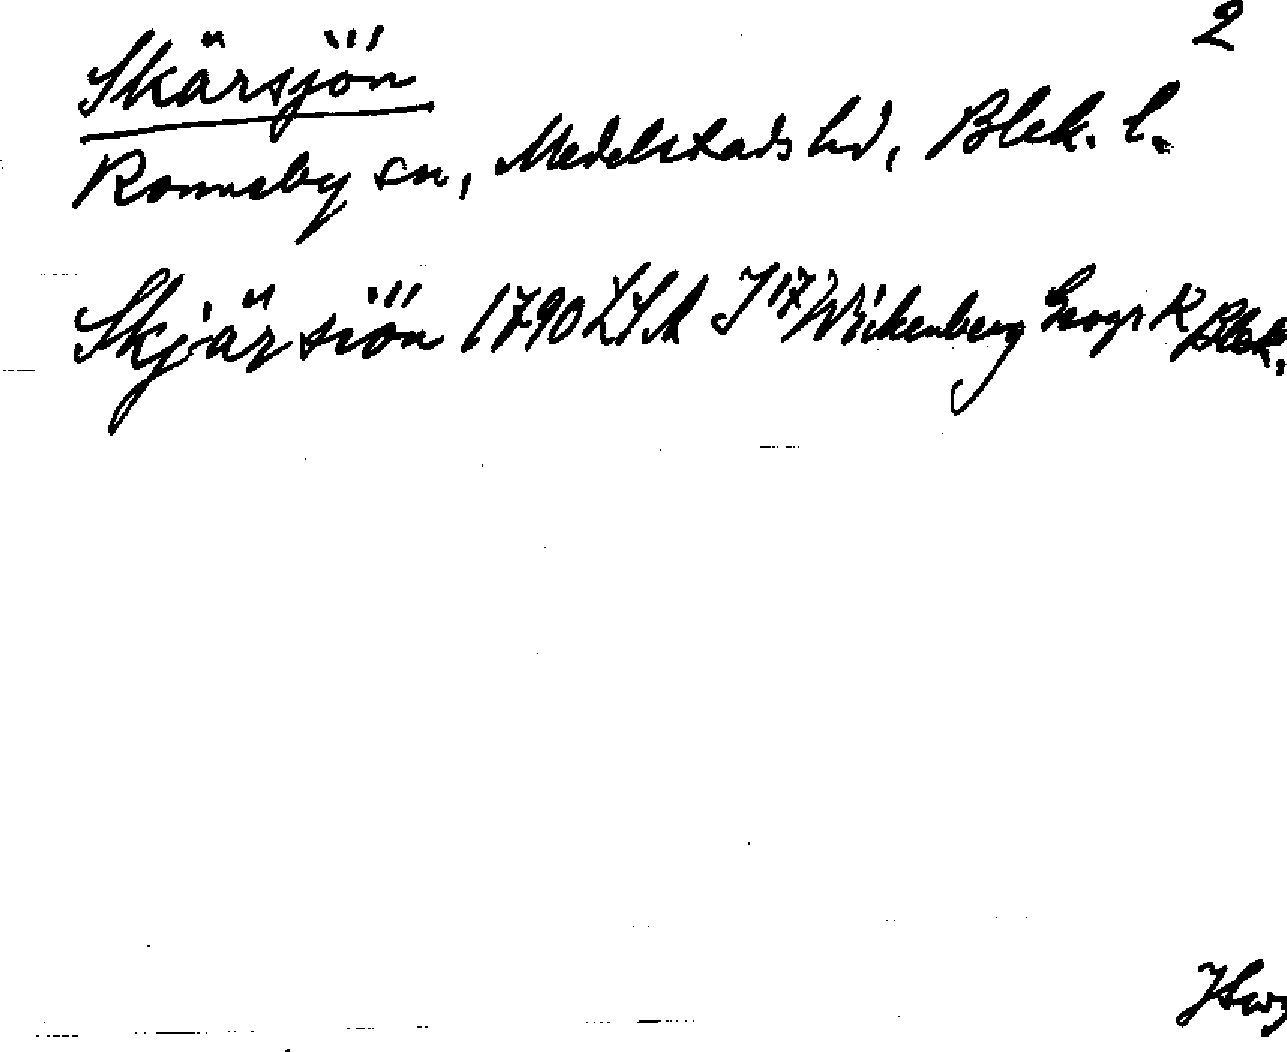 2
Skärsjön
Ronneby sn, Medelstads hd, Blek. l.
Skjärsiön 1790 LSA J 17 Wickenberg Geogr K Blek.